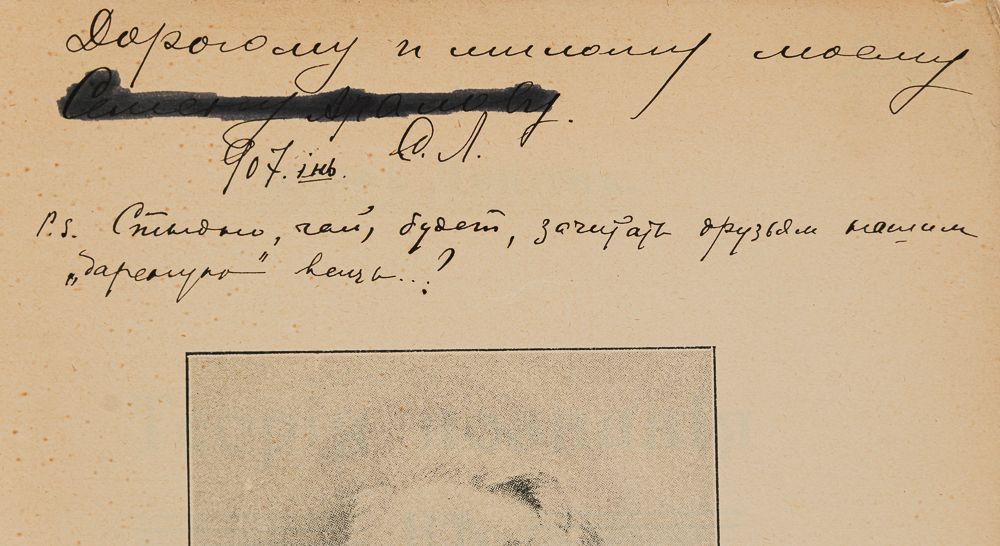 Дорогому и милому моему
Семену
907. iнь. О. Л.
P.S. Стыдно, чай, будет, зачитать друзьям нашим
„дареную" вещь...?